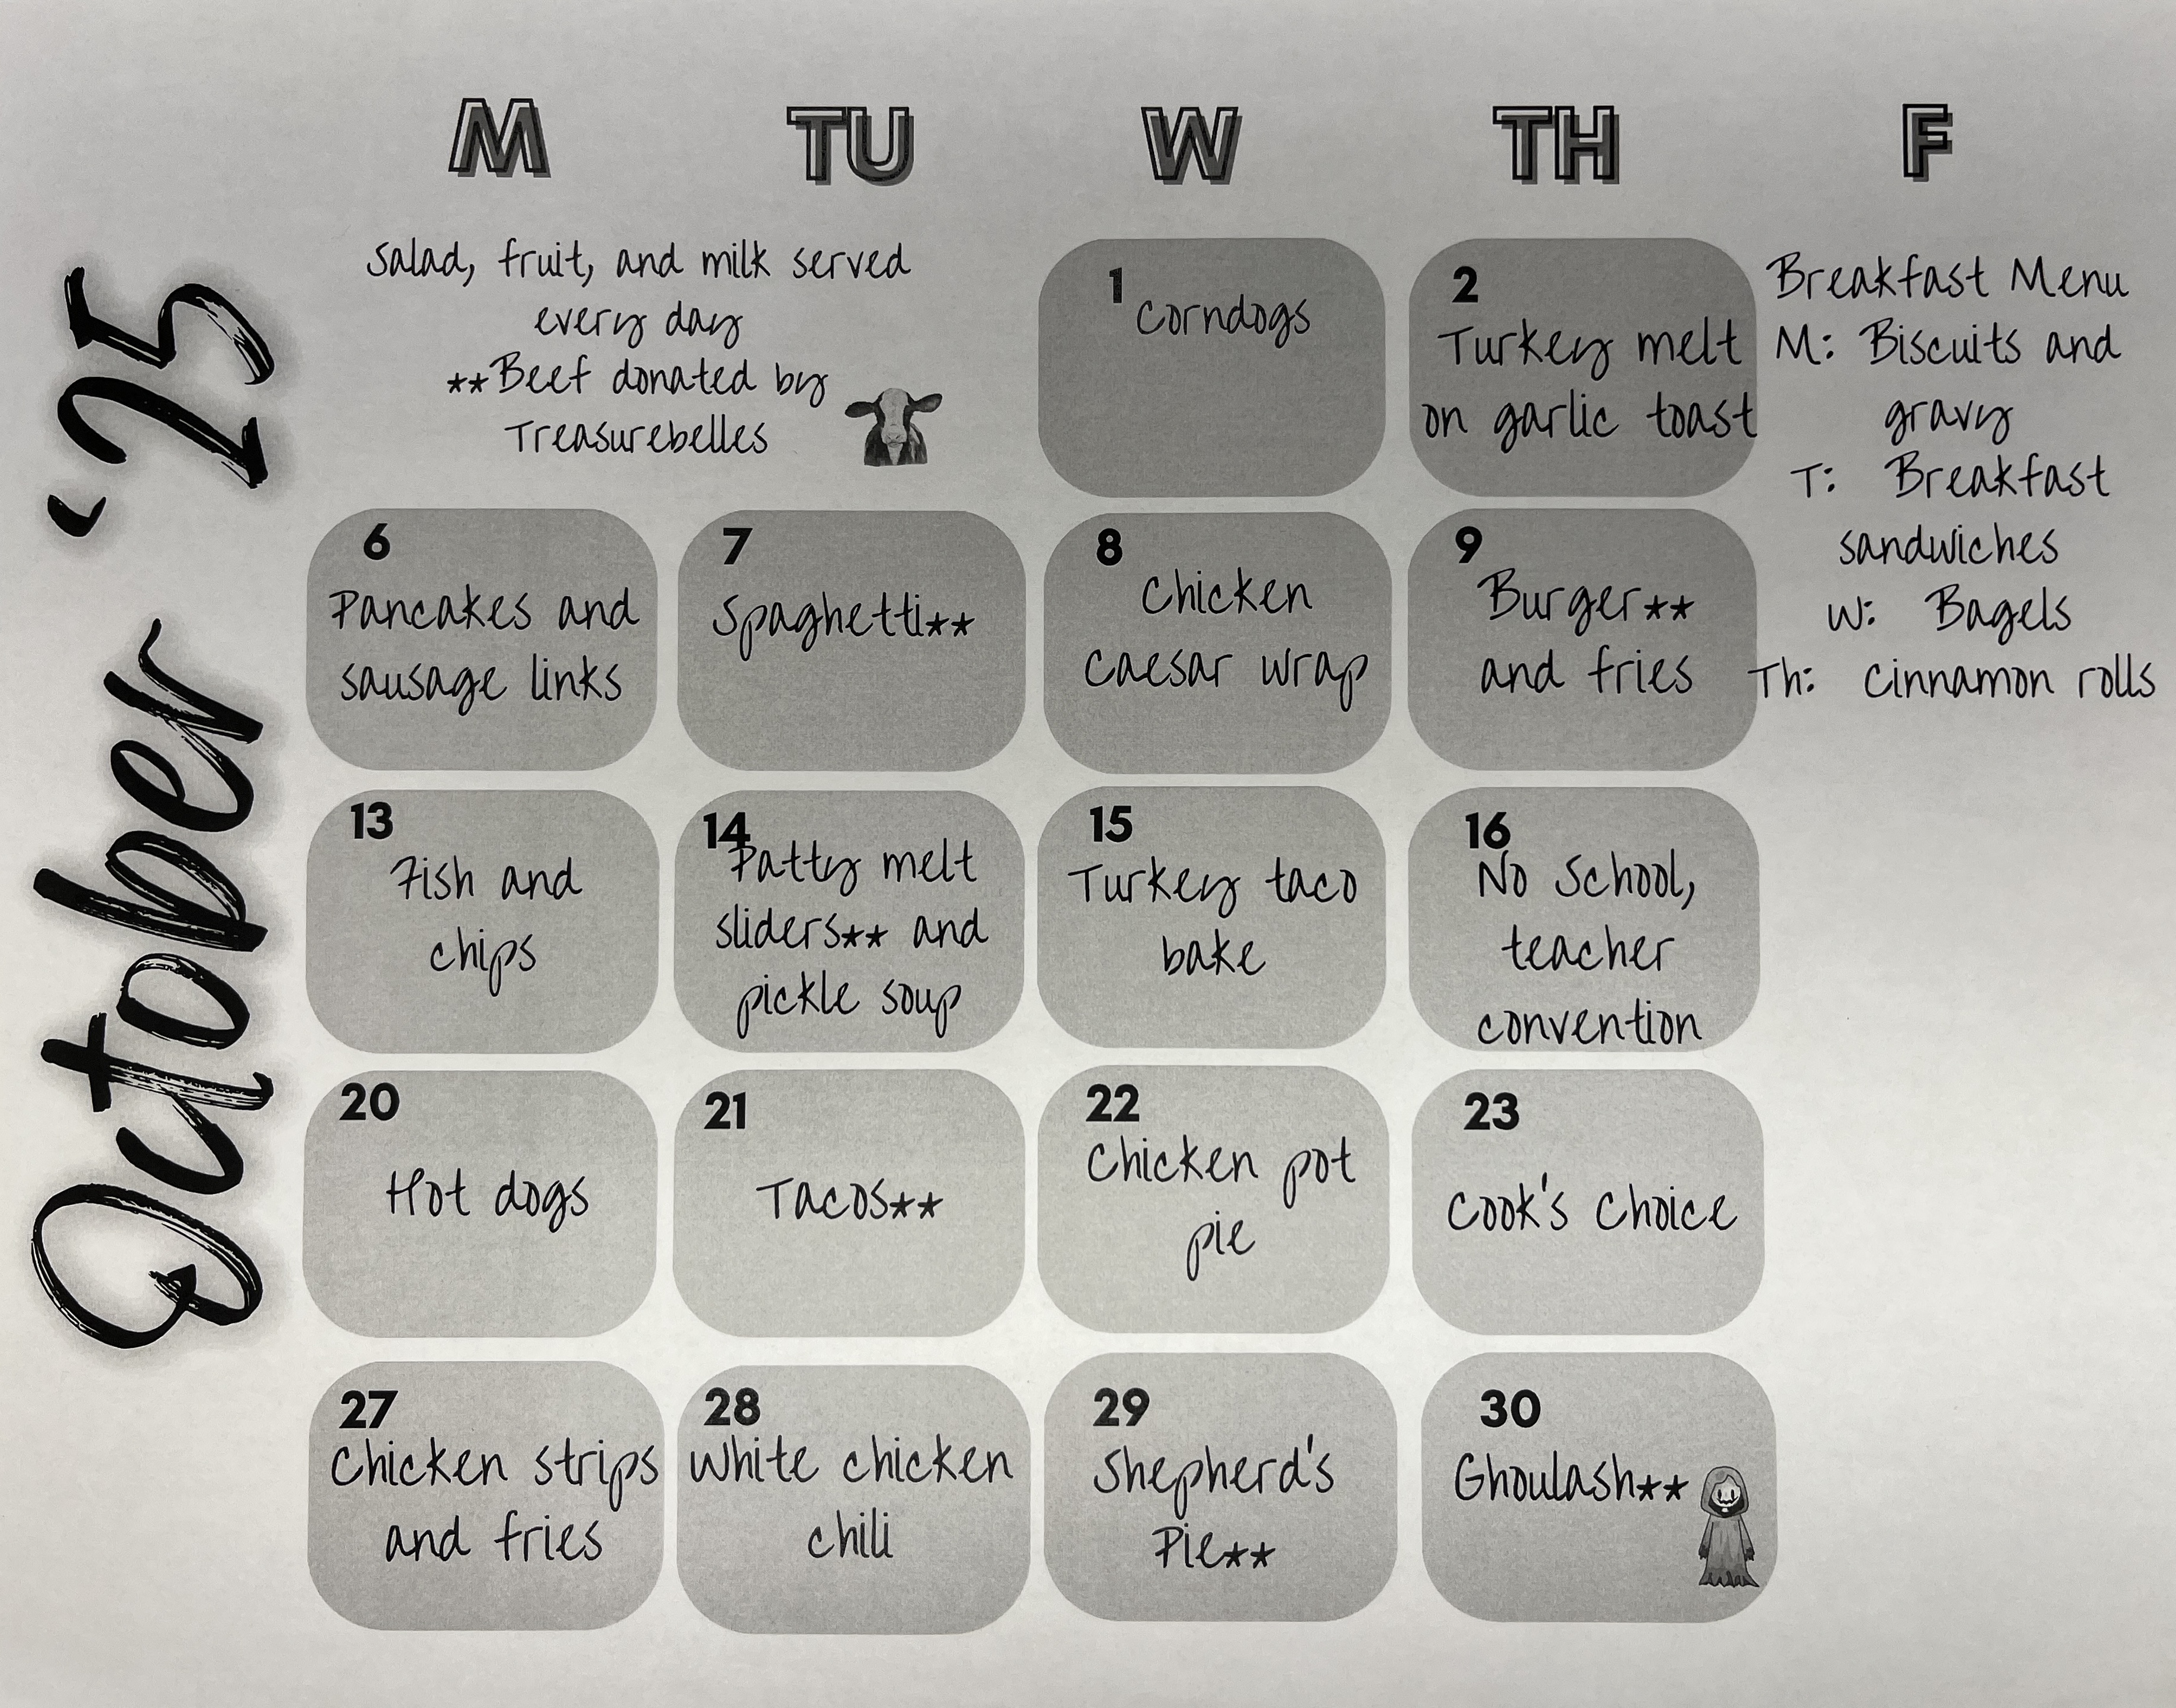 October '25
M TU W TH F
Salad, fruit, and milk served
every day
**Beef donated by
Treasurebelles
1
Corndogs
2
Turkey melt
on garlic toast
Breakfast Menu
M: Biscuits and
gravy
T: Breakfast
sandwiches
W: Bagels
Th: Cinnamon rolls
6
Pancakes and
sausage links
7
Spaghetti**
8
Chicken
Caesar wrap
9
Burger**
and fries
13
Fish and
chips
14
Patty melt
sliders** and
pickle soup
15
Turkey taco
bake
16
No School,
teacher
convention
20
Hot dogs
21
Tacos**
22
Chicken pot
pie
23
Cook's Choice
27
Chicken strips
and fries
28
White chicken
chili
29
Shepherd's
Pie**
30
Ghoulash**